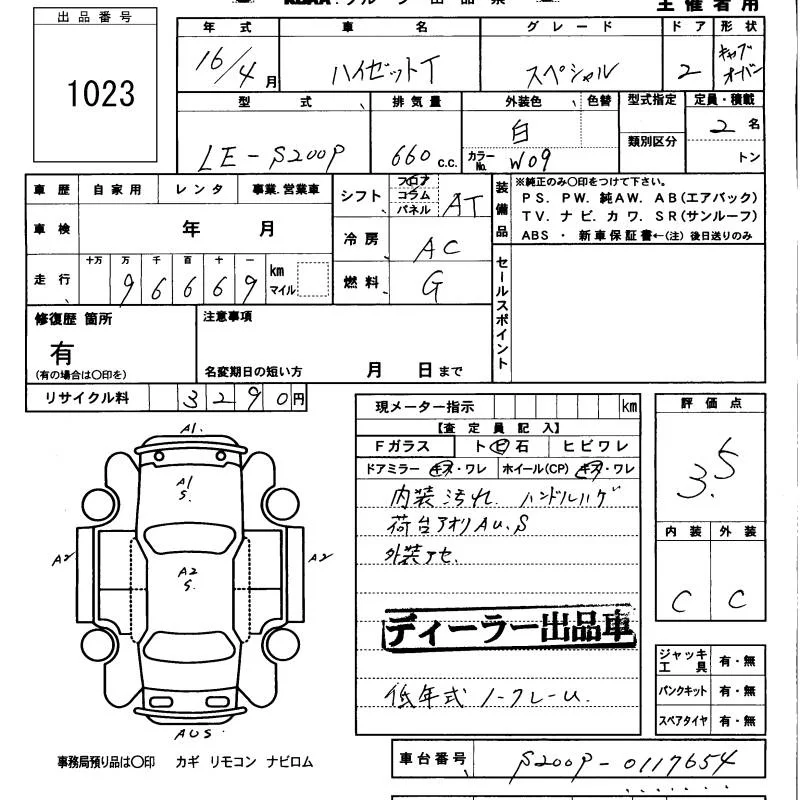 出品番号
1023
主催者用
年式 車名 グレード ドア 形状
16/4月 ハイゼットT スペシャル 2 キャブオーバン
型式 排気量 外装色 色替 型式指定 定員・積載
LE-S200P 660c.c. 白 カラーNo. W09 類別区分 2名 トン
車歴 自家用 レンタ 事業.営業車
車検 年 月
走行 十万 万 千 百 十 一
96669 km マイル
シフト フロア コラム パネル AT
冷房 AC
燃料 G
装備品
※純正のみ○印をつけて下さい。
PS. PW. 純AW. AB(エアバック)
TV. ナビ. カワ. SR(サンルーフ)
ABS ・ 新車保証書←(注) 後日送りのみ
セールスポイント
修復歴 箇所
有
(有の場合は○印を)
注意事項
名変期日の短い方 月 日まで
リサイクル料 3290円
現メーター指示 km
【査定員記入】
Fガラス トビ石 ヒビワレ
ドアミラー キズ・ワレ ホイール(CP) キズ・ワレ
内装汚れ ハンドルハゲ
荷台アオリAU.S
外装アセ.
ディーラー出品車
低年式 ノークレーム.
評価点
3.5
内装 外装
C C
ジャッキ工具 有・無
パンクキット 有・無
スペアタイヤ 有・無
A1.
A1
S.
A2
A2
S.
A2
AUS
事務局預り品は○印 カギ リモコン ナビロム
車台番号 S200P-0117654